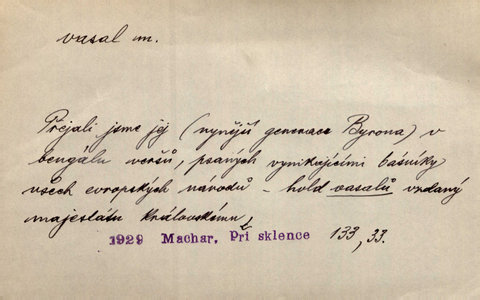 vasal m.
Přejali jsme jej (nynější generace Byrona) v
bengálu veršů, psaných vynikajícími básníky
všech evropských národů – hold vasalů vzdaný
majestátu královskému,
1929 Machar, Při sklence 133, 33.